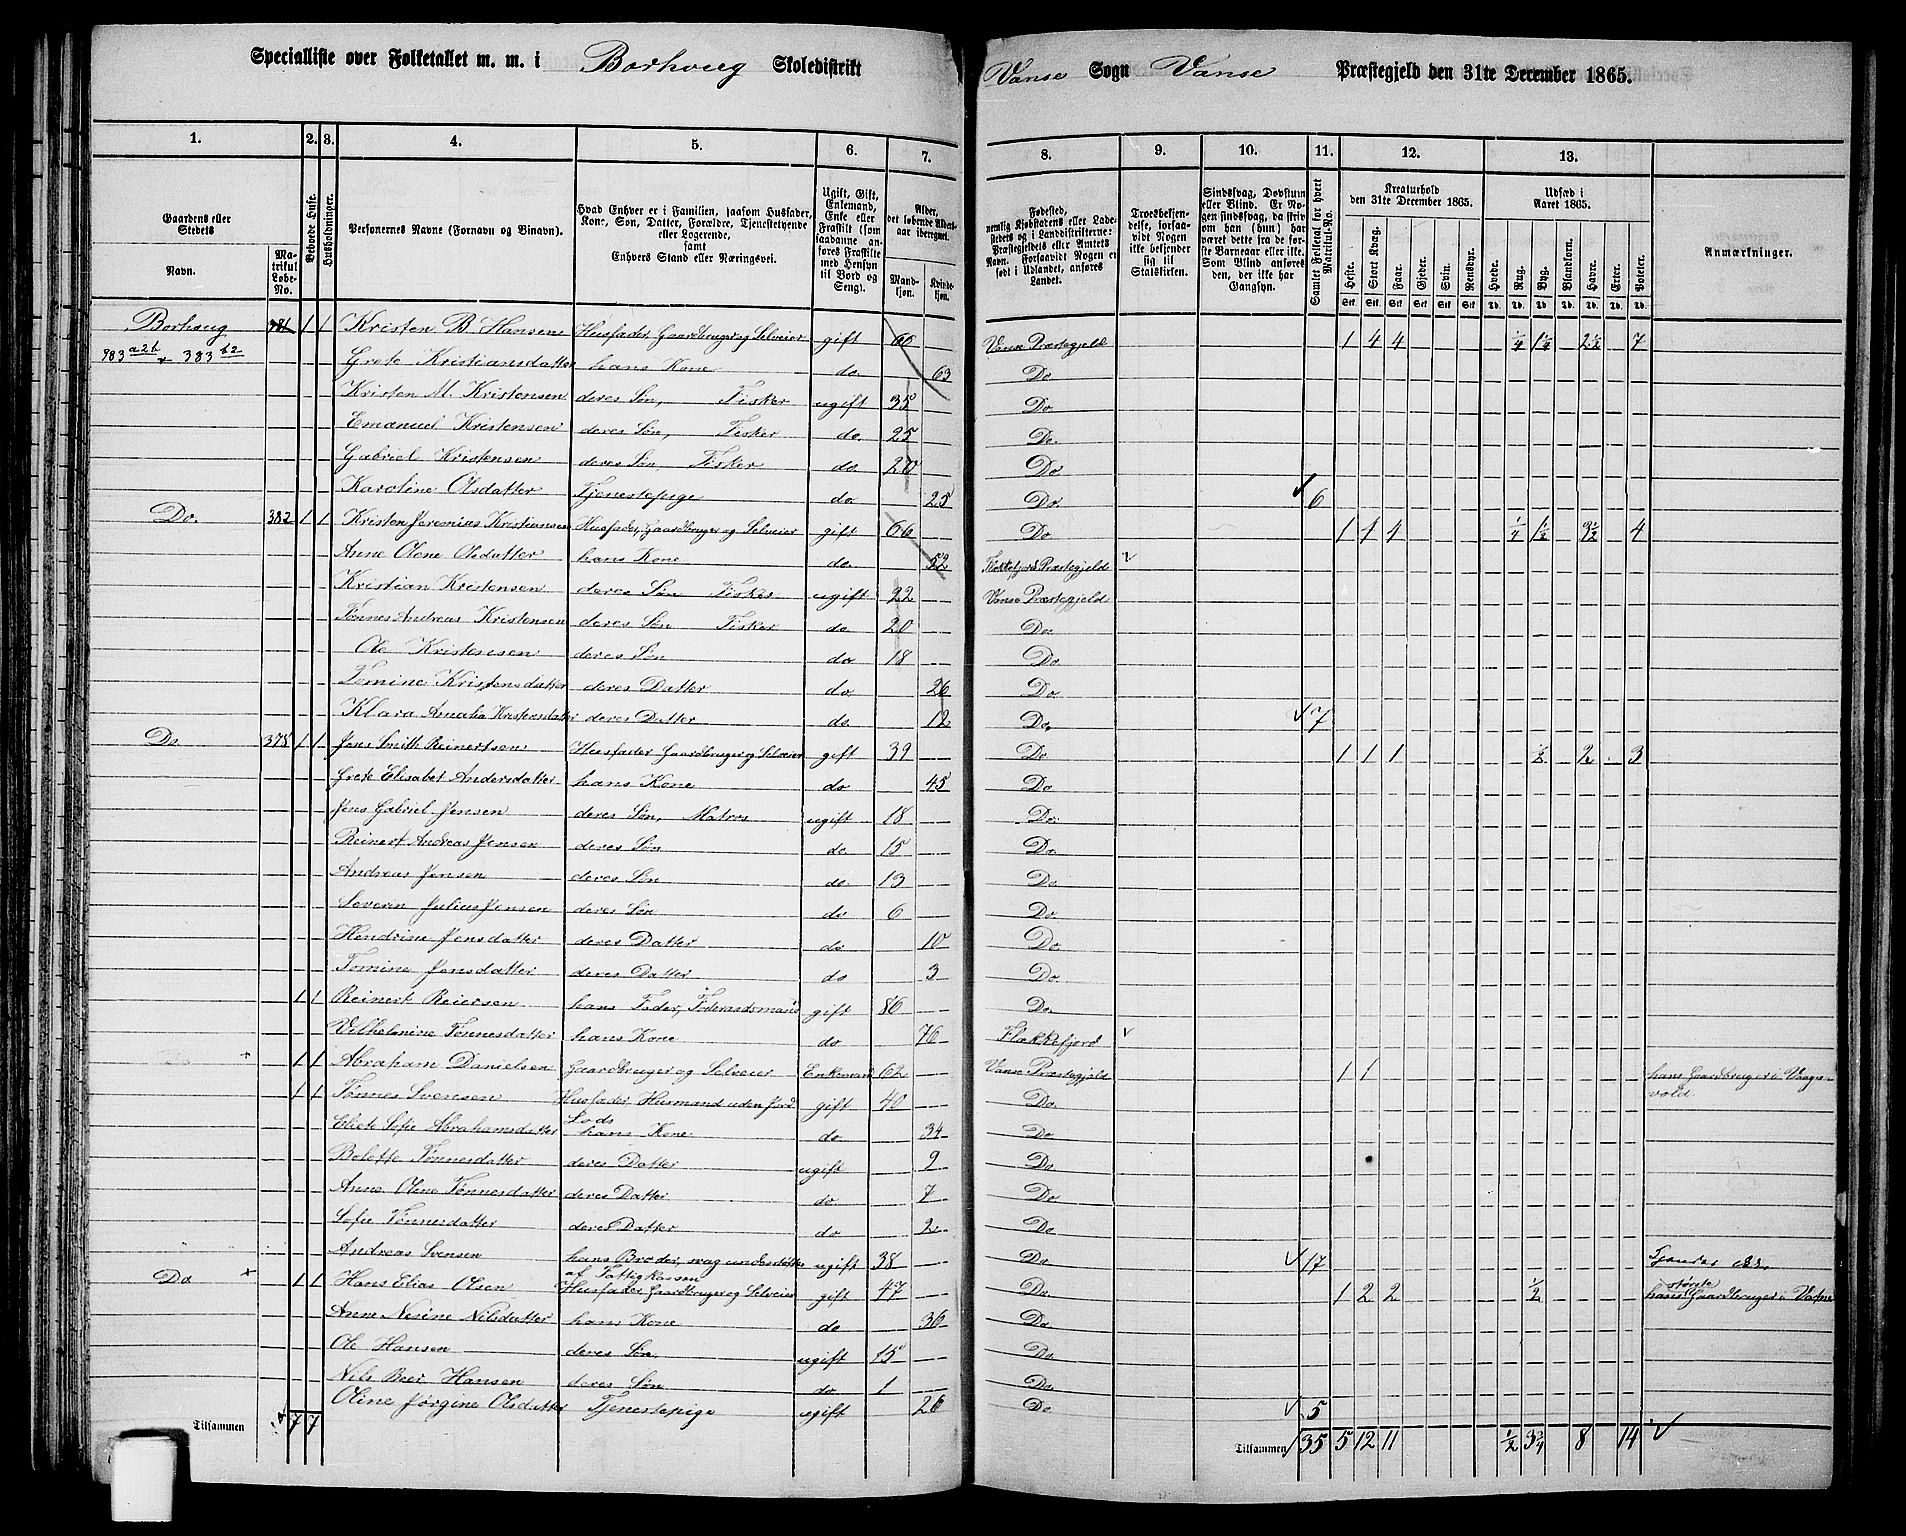 Specialliste over Folketallet m. m. i Borhoug Skoledistrikt Vanse Sogn Vanse Præstegjeld den 31te December 1865.
1. 2. 3. 4. 5. 6. 7. 8. 9. 10. 11. 12. 13.
Gaardens eller Stedets Navn. Matrikul Løbe-No. Beboede Huse. Husholdninger. Personernes Navne (Fornavn og Binavn).
Hvad Enhver er i Familien, saasom Husfader, Kone, Søn, Datter, Forældre, Tjenestetyende eller Logerende, samt Enhvers Stand eller Næringsvei.
Ugift, Gift, Enkemand, Enke eller Fraskilt (som saadanne anføres Fraskilte med Hensyn til Bord og Seng).
Alder, det løbende Alders-aar iberegnet. Mandkjøn. Kvindekjøn.
Fødested, nemlig Kjøbstadens eller Ladestedets og i Landdistrikterne: Præstegjeldets eller Amtets Navn. Forsaavidt Nogen er født i Udlandet, anføres Landet.
Troesbekjendelse, forsaavidt Nogen ikke bekjender sig til Statskirken.
Sindssvag, Døvstum eller Blind. Er Nogen sindssvag, da skriv om han (hun) har været dette fra de første Barneaar eller ikke. Som Blind anføres den, der ikke har Gangsyn.
Samlet Folketal for hvert Matrikul-No.
Kreaturhold den 31te December 1865. Heste. Stort Kvæg. Faar. Gjeder. Svin. Rensdyr.
Udsæd i Aaret 1865. Hvede. Rug. Byg. Blandkorn. Havre. Erter. Poteter.
Anmærkninger.
Borhoug 381 1 1 Kristen B. Hansen Husfader, Gaardbruger og Selveier gift 66 Vanse Præstegjeld 1 4 4 1/4 1 1/4 2 1/2 7
383 a2b & 383 b2 Grete Kristiansdatter hans Kone do. 63 Do.
Kristen M. Kristensen deres Søn, Fisker ugift 35 Do.
Emanuel Kristensen deres Søn, Fisker do. 25 Do.
Gabriel Kristensen deres Søn, Fisker do. 20 Do.
Karoline Olsdatter Tjenestepige do 25 Do. 6
Do. 382 1 1 Kristen Jeremias Kristiansen Husfader, Gaardbruger og Selveier gift 66 Do 1 1 4 1/4 1/2 3 1/2 4
Anne Olene Olsdatter hans Kone do. 52 Flekkefjord Præstegjeld
Kristian Kristensen deres Søn Fisker ugift 22 Vanse Præstegjeld
Tønnes Andreas Kristensen deres Søn Fisker do 20 Do.
Ole Kristensen deres Søn do 18 Do
Tomine Kristensdatter deres Datter do 26 Do.
Klara Amalia Kristensdatter deres Datter do 12 Do. 7
Do 378 1 1 Jens Smith Reinertsen Husfader, Gaardbruger og Selveier gift 39 Do 1 1 1 1/2 2 3
Grete Elisabet Andersdatter hans Kone do 45 Do
Jens Gabriel Jensen deres Søn, Matros ugift 18 Do.
Reinert Andreas Jensen deres Søn do. 15 Do.
Andreas Jensen deres Søn do 13 Do
Severin Julius Jensen deres Søn do 6 Do.
Hendrine Jensdatter deres Datter do 10 Do
Tomine Jensdatter deres Datter do 3 Do.
1 1 Reinert Reiersen hans Fader, Føderaadsmand gift 86 Do.
Vilhelmine Tønnesdatter hans Kone do. 76 Flekkefjord
1 1 Abraham Danielsen Gaardbruger og Selveier Enkemand 62 Vanse Præstegjeld 1 1 hans Gaardbrug er i Vaags-
1 1 Tønnes Svensen Husfader, Husmand uden Jord gift 40 Do. vold.
Lods
Eliete Sofie Abrahamsdatter hans Kone do 34 Do.
Bolette Tønnesdatter deres Datter ugift 9 Do
Anne Olene Tønnesdatter deres Datter do 7 Do
Sofie Tønnesdatter deres Datter do 2 Do
Andreas Svensen hans Broder, svag understøttes ugift 38 Do. 17
af Fattigkassen
Do 1 1 Hans Elias Olsen Husfader, Gaardbruger og Selveier gift 47 Do. 1 2 2 1/2 største
hans Gaardbrug er i
Anne Nesine Nilsdatter hans Kone do 36 Do.
Ole Hansen deres Søn ugift 15 Do
Nils Beer Hansen deres Søn do 1 Do.
Oline Jørgine Olsdatter Tjenestepige ugift 26 Do 5
Tilsammen 7 7 Tilsammen 35 5 12 11 1/2 3 3/4 8 14